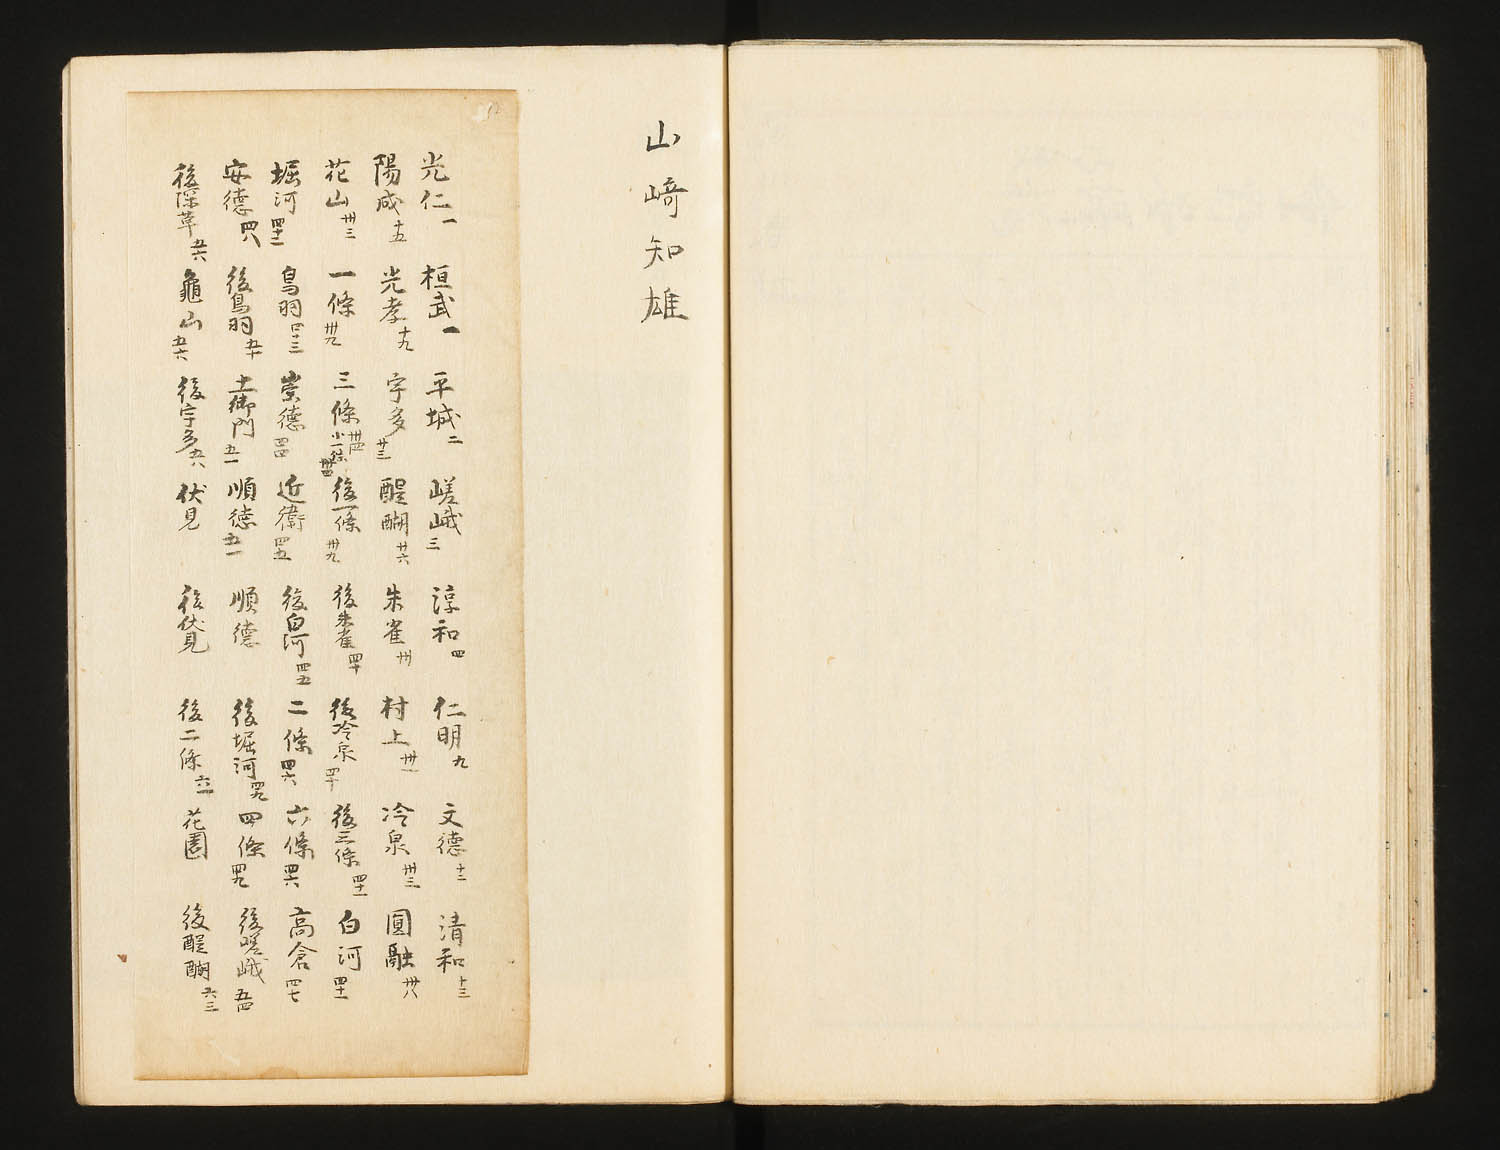 山﨑知雄
光仁一 桓武一 平城二 嵯峨三 淳和四 仁明九 文德十二 清和十三
陽成十五 光孝十九 宇多廿三 醍醐廿六 朱雀卅 村上卅一 冷泉卅三 圓融卅八
花山卅三 一條卅九 三條卅四 小一條卅四 後一條卅九 後朱雀四十 後冷泉四十 後三條四十一 白河四十一
堀河四十二 鳥羽四十三 崇德四四 近衛四五 後白河四五 二條四六 六條四六 高倉四七
安德四八 後鳥羽五十 土御門五一 順德五一 順德 後堀河四九 四條四九 後嵯峨五四
後深草五六 龜山五六 後宇多五八 伏見 後伏見 後二條六一 花園 後醍醐六三